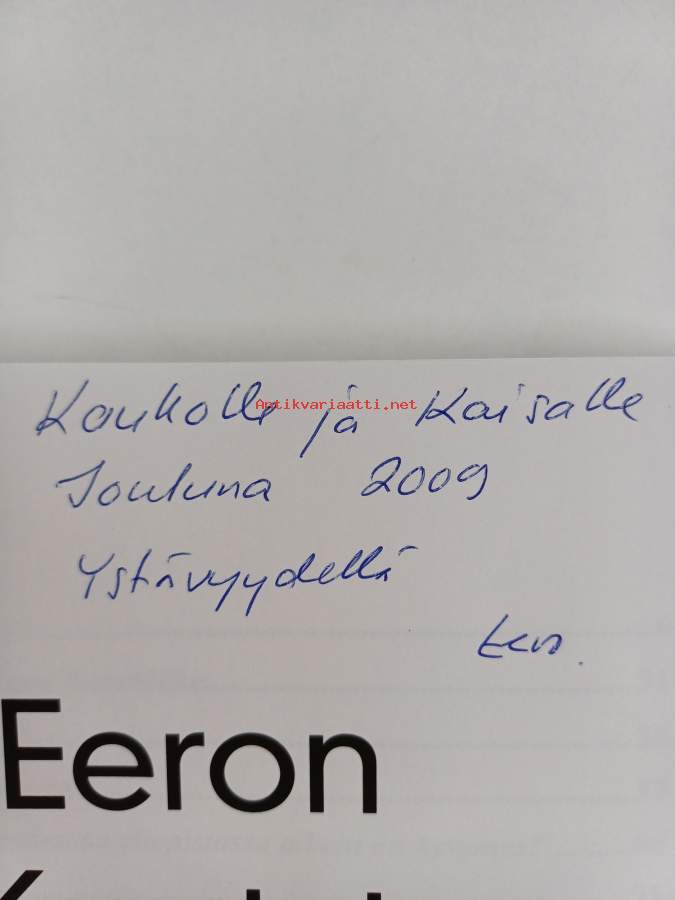 Koukolle ja Kaisalle
Antikvariaatti.net
Jouluna 2009
Ystävyydellä
Eero.
Eeron